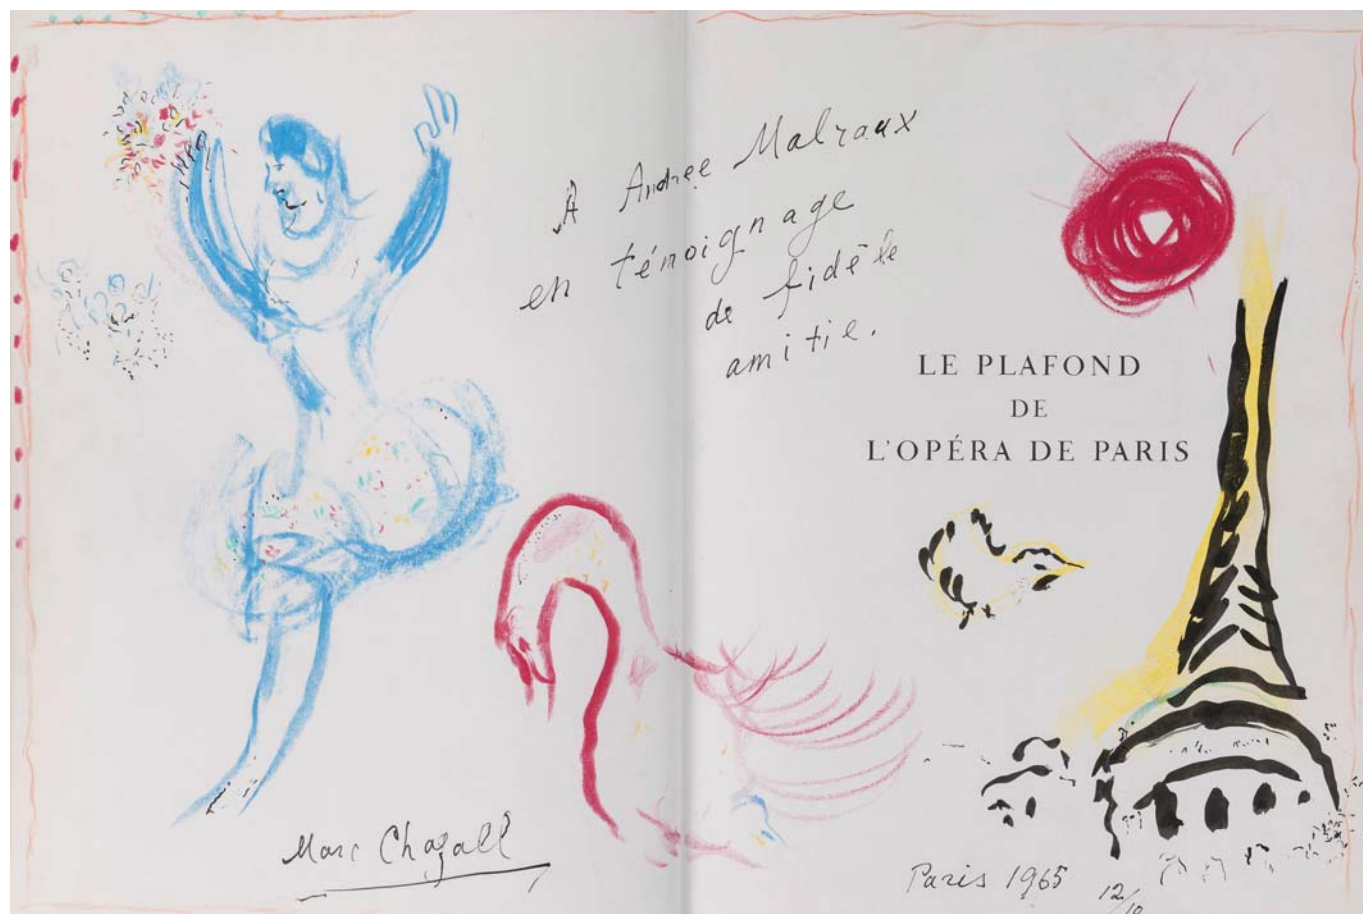 A Andree Malraux
en témoignage
de fidèle
amitie.
LE PLAFOND
DE
L'OPÉRA DE PARIS
Marc Chagall
Paris 1965 12/10